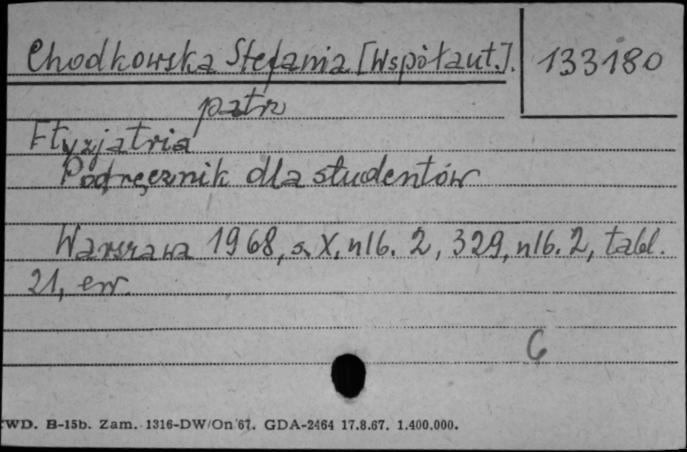 Chodkowska Stefania [Współaut.]. 133180
patrz
Ftyzjatria
Podręcznik dla studentów
Warszawa 1968, s. X, nlb. 2, 329, nlb. 2, tabl.
21, err.
6
WD. B-15b. Zam. 1316-DW/On 67. GDA-2464 17.8.67. 1.400.000.